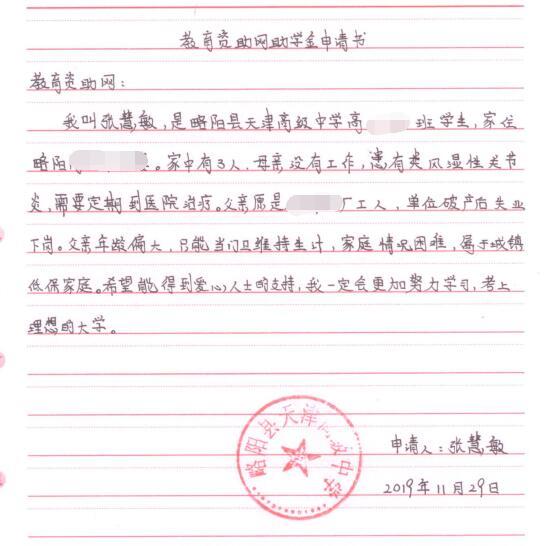 教育资助网助学金申请书
教育资助网：
我叫张慧敏，是略阳县天津高级中学高 班学生，家住
略阳 。家中有3人，母亲没有工作，患有类风湿性关节
炎，需要定期到医院治疗。父亲原是 厂工人，单位破产后失业
下岗。父亲年龄偏大，只能当门卫维持生计，家庭情况困难，属于城镇
低保家庭。希望能得到爱心人士的支持，我一定会更加努力学习，考上
理想的大学。
略阳县天津高级中学
申请人：张慧敏
2019年11月29日